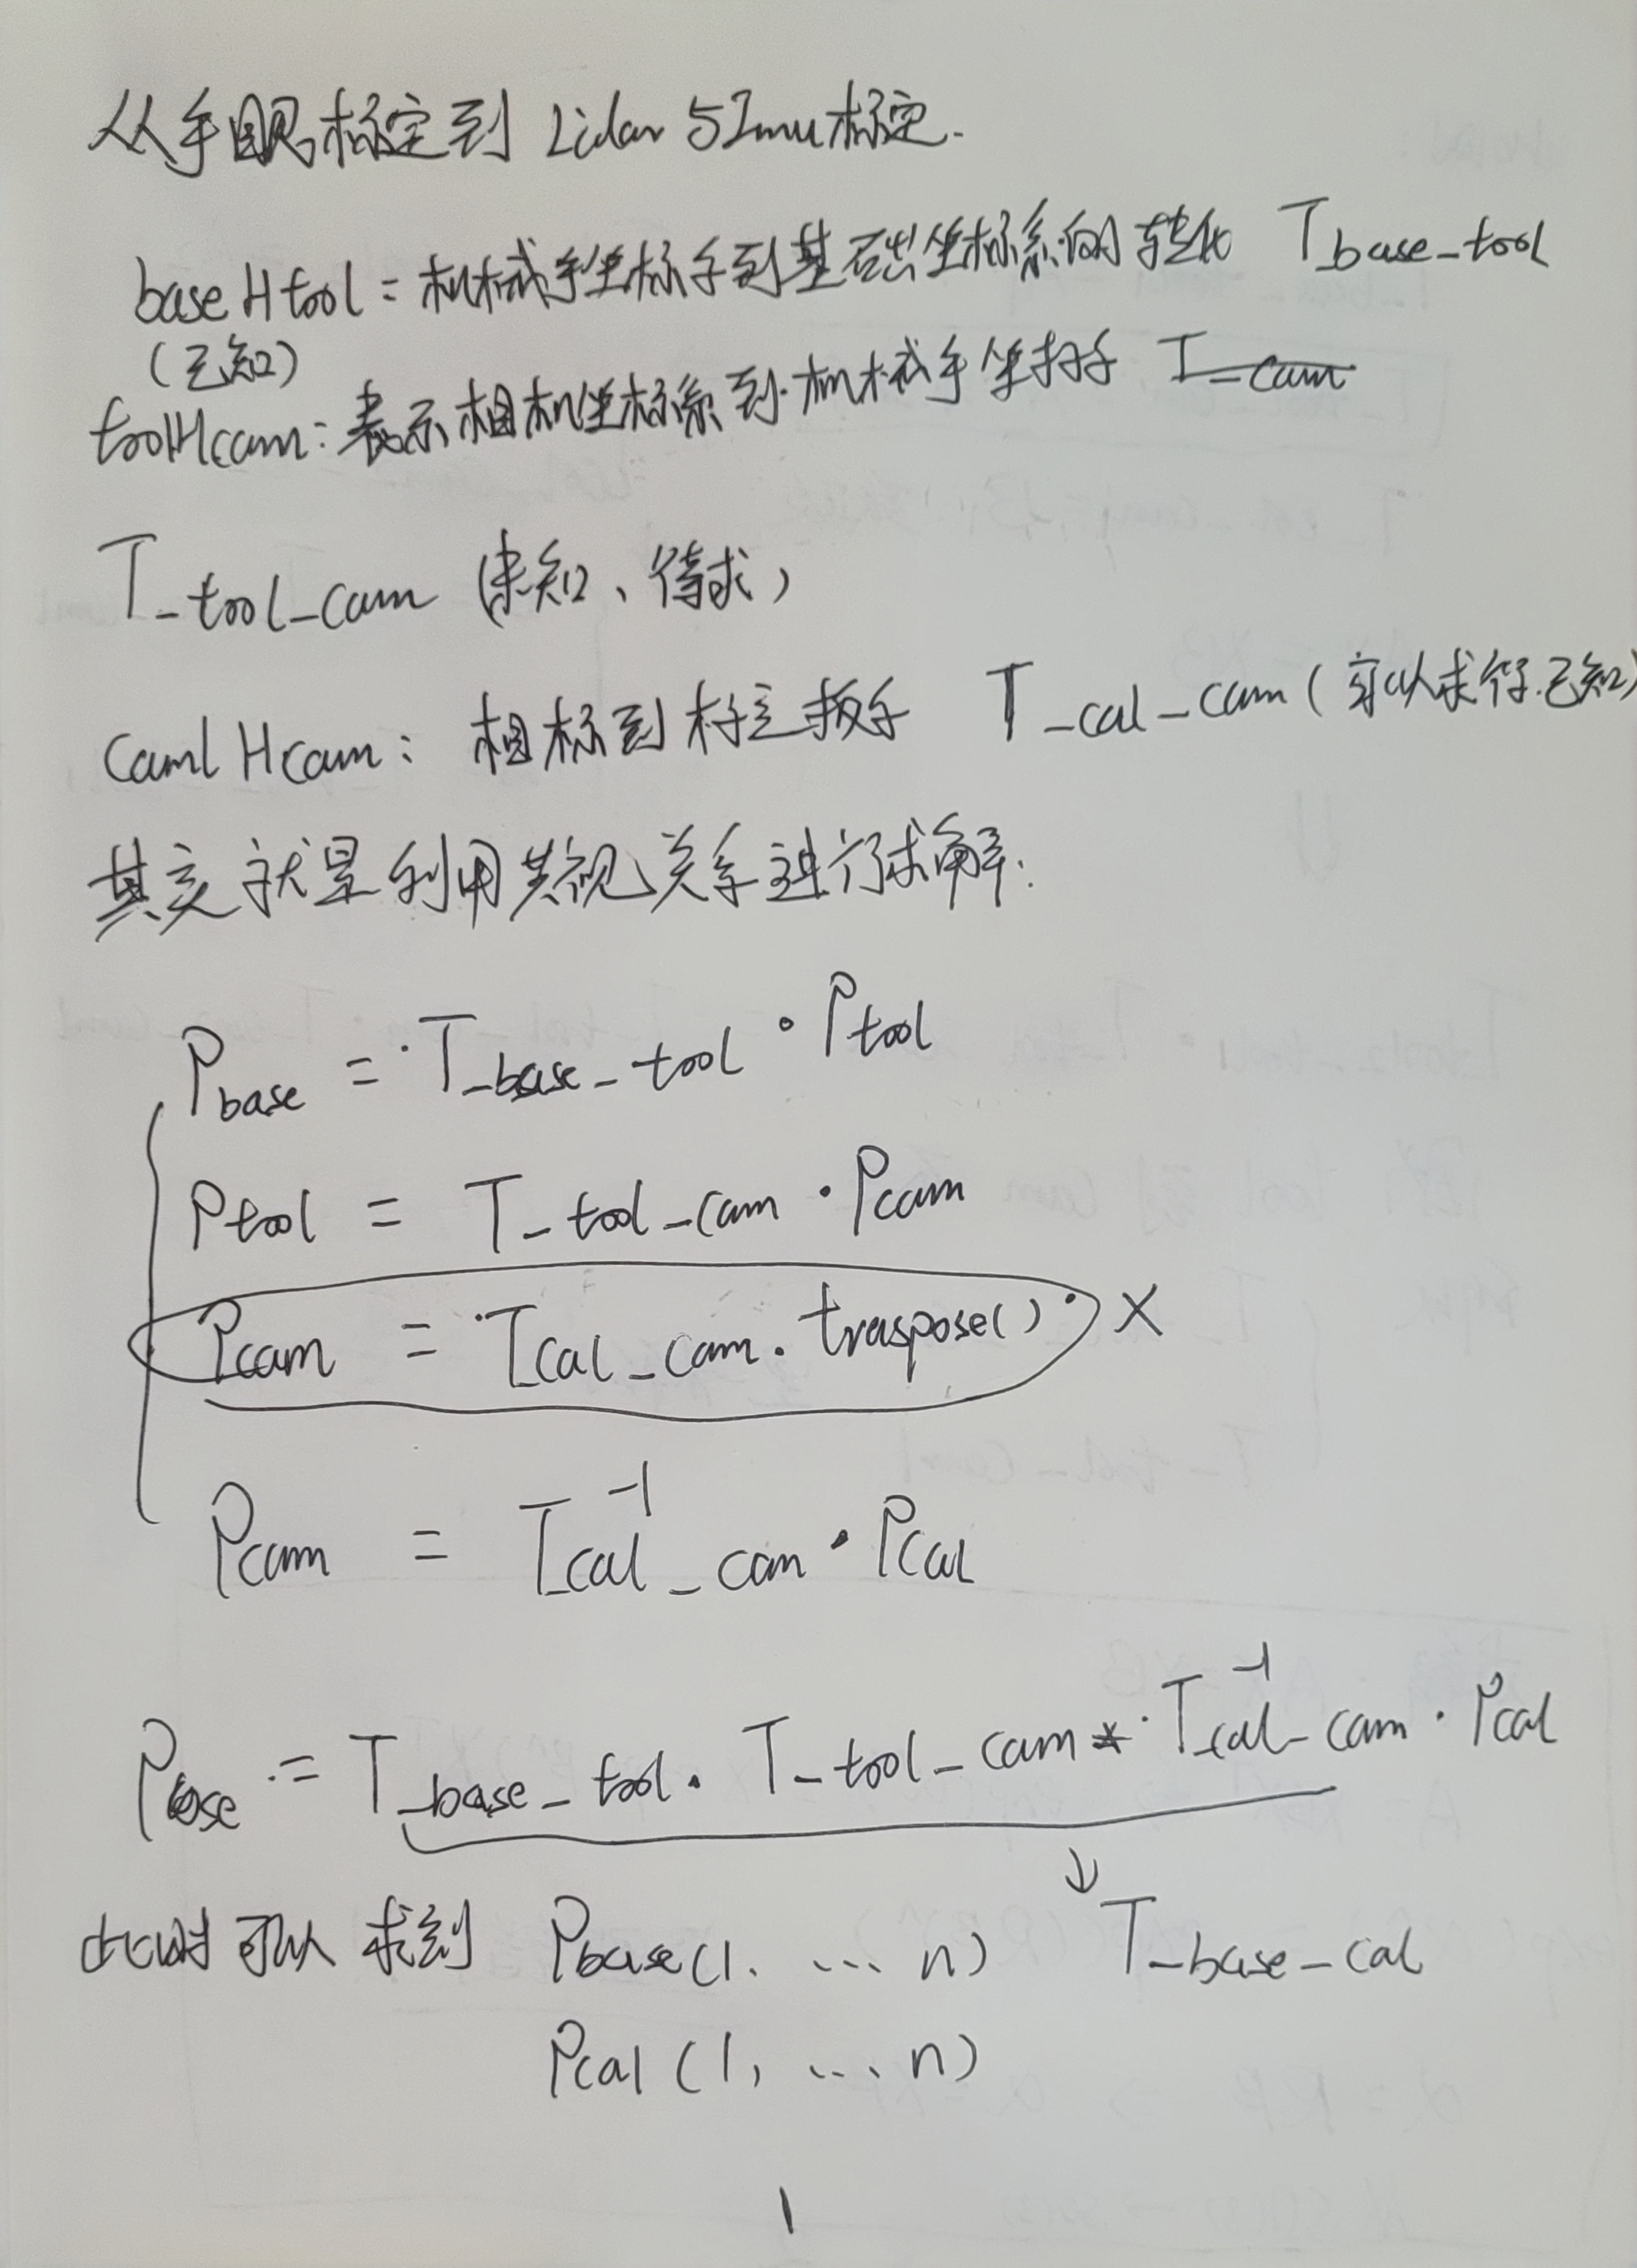 从手眼标定到 Lidar 与Imu标定.
baseHtool = 机械手坐标系到基础坐标系的转化 T_base_tool
(已知)
toolHcam: 表示相机坐标系到机械手坐标系 T_cam
T_tool_cam (未知、待求)
camlHcam: 相标到标定板系 T_cal_cam (可以求得.已知)
其实就是利用共视关系进行求解.
Pbase = T_base_tool · Ptool
Ptool = T_tool_cam · Pcam
Pcam = T_cal_cam.traspose() · ×
Pcam = T_cal_cam⁻¹ · Pcal
Pbase = T_base_tool · T_tool_cam * T_cal_cam⁻¹ · Pcal
↓
此时可以求到 Pbase(1. ... n) T_base_cal
Pcal (1, ... n)
1